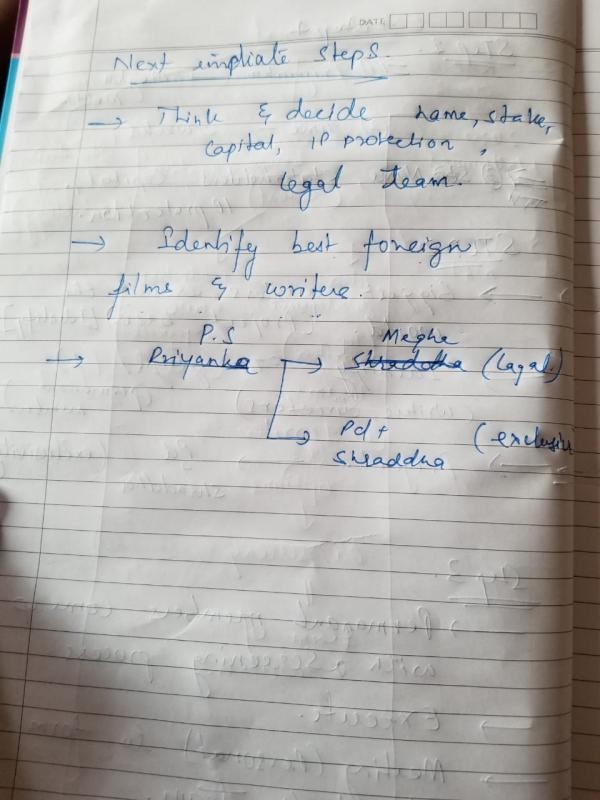 DATE
Next impliate steps
→ Think & decide name, stake,
capital, IP protection,
legal team.
→ Identify best foreign
films & writers.
P.S Megha
→ Priyanka → Shraddha (Lagal)
→ Pd + (exclusiv
Shraddha